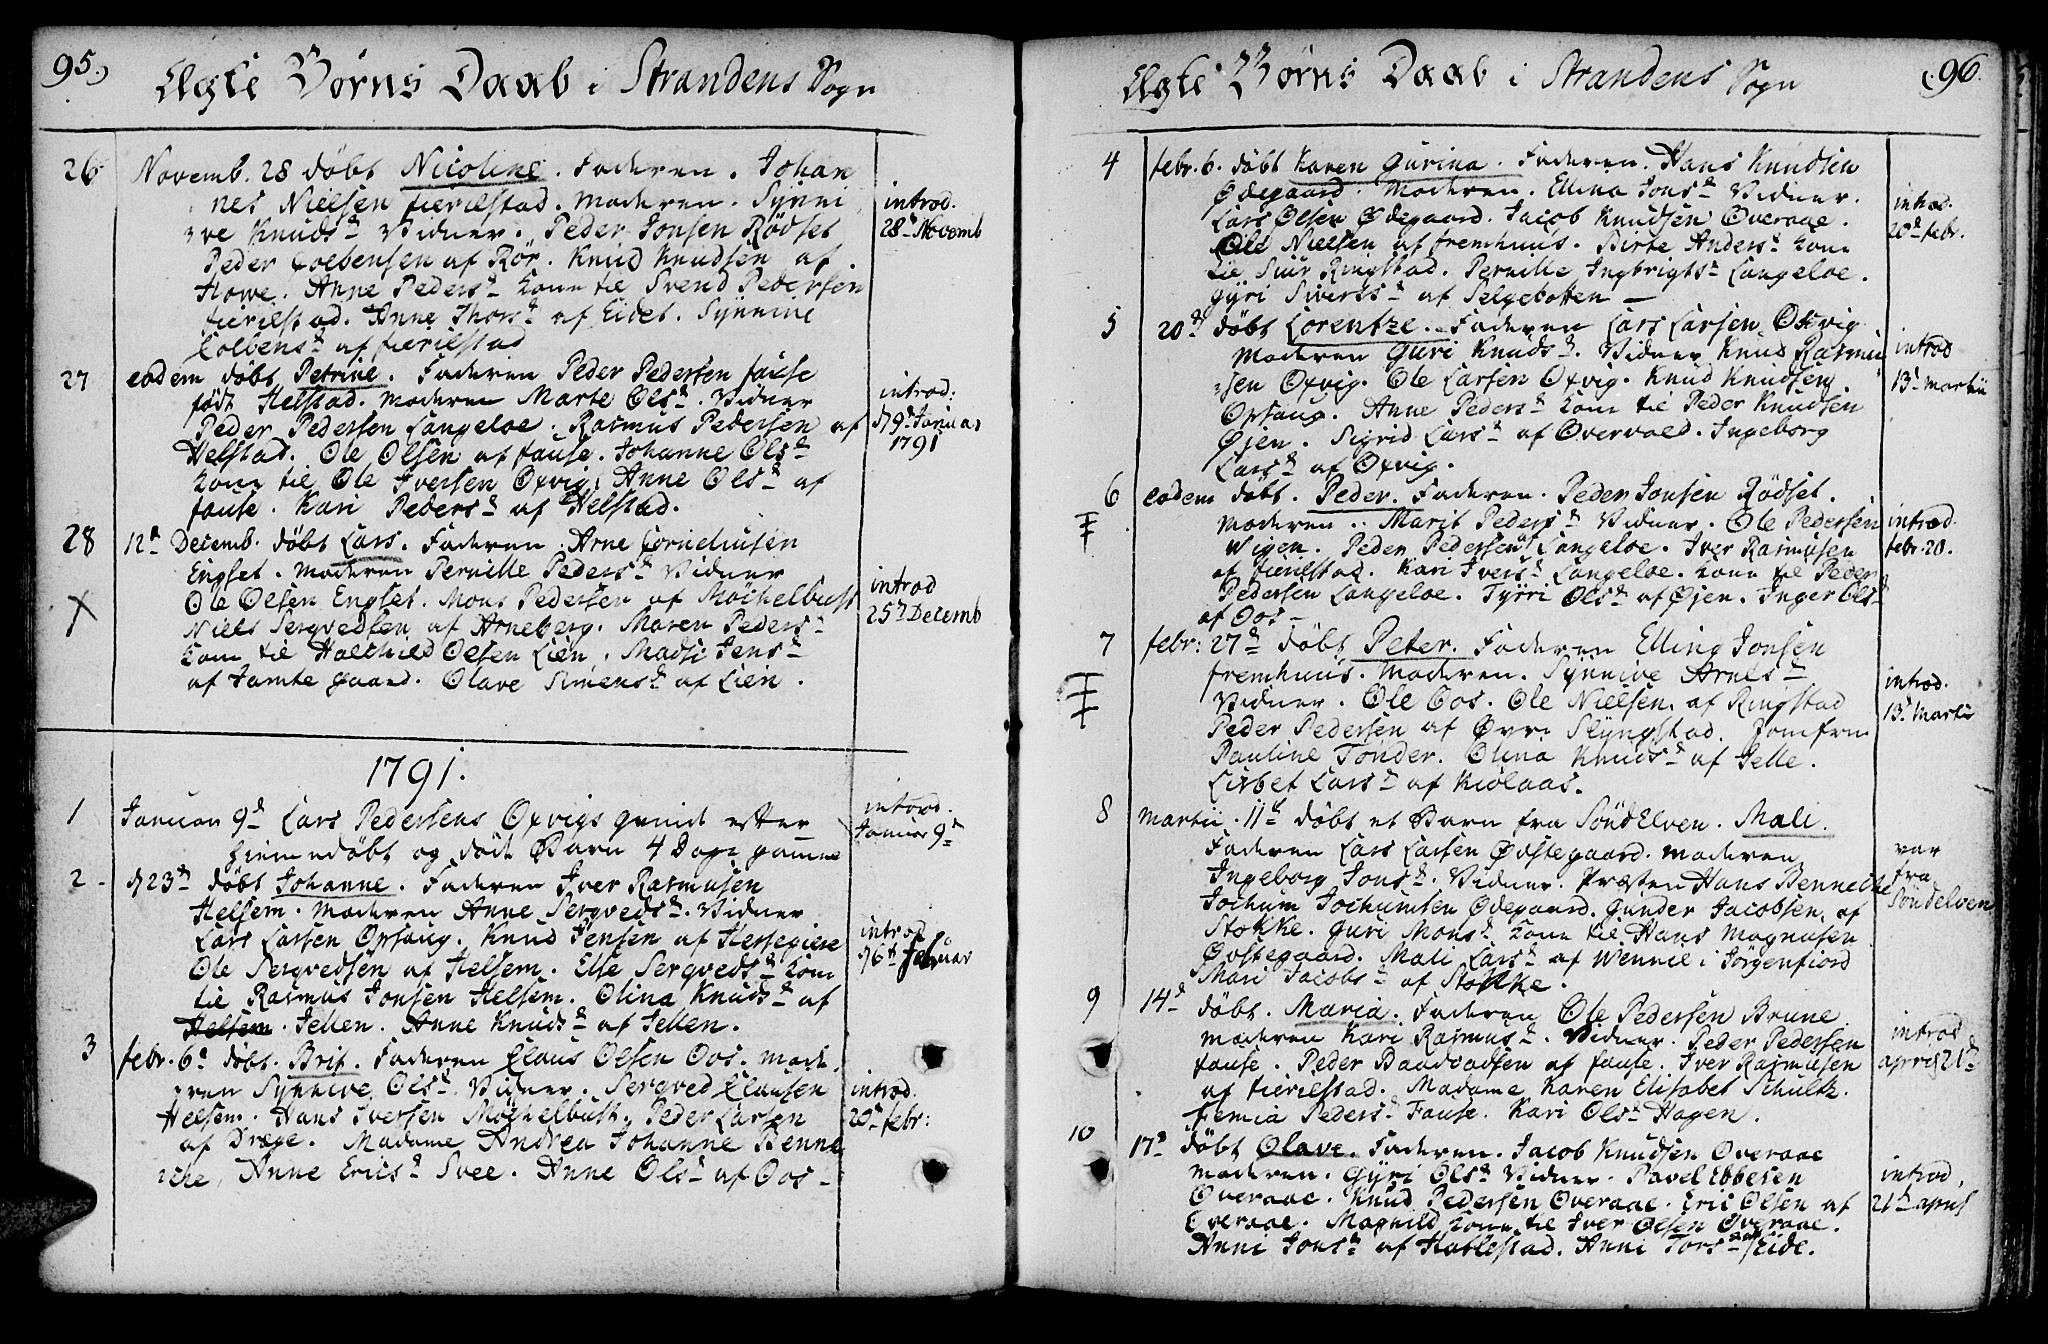 95.)
Ægte Börns Daab i Strandens Sogn
26 Novemb. 28 döbt Nicoline. Faderen. Johan
nes Nielsen fierelstad. Moderen. Synni
ve Knudsd. Vidner. Peder Jonsen Rödset
Peder Colbensen af Rör. Knud Knudsen af
Howe. Anne Pedersd. kone til Svend Pedersen
fierelstad. Anne Thorsd. af Eidet. Synnive
Colbensd. af fierelstad
introd.
28de Novemb
27 eodem döbt Petrine. Faderen Peder Pedersen fause
födt Helstad. Moderen Marte Olsd. Vidner
Peder Pedersen Langeloe. Rasmus Pedersen af
Helstad. Ole Olsen af fause. Johanne Olsd
kone til Ole Iversen Oxvig. Anne Olsd. af
fause. Kari Pedersd. af Helstad.
introd:
d 9d Januar
1791
28 12d Decemb. döbt Lars. Faderen Arne Corneliusen
Engset. Moderen Pernille Pedersd. Vidner
Ole Olsen Engset. Mons Pedersen af Möchelbust
Niels Sergvedsen af Arneberg. Maren Pedersd
kone til Halchild Olsen Lien. Madsi Jensd
af Jamtegaard. Olave Simensd. af Lien.
introd
25d Decemb
1791.
1 Januar 9d Lars Pedersens Oxvigs qvinde efter
hiemmedöbt og död Barn 4 Dage gamme
introd.
Januar 9d
2 d 23d döbt Johanne. Faderen Iver Rasmusen
Helsem. Moderen Anne Sergvedsd. Vidner
Lars Larsen Opsaug. Knud Jensen af Hessegiere
Ole Sergvedsen af Helsem. Else Sergvedsd. kone
til Rasmus Jonsen Helsem. Olina Knudsd. af
Helsem. Jellen. Anne Knudsd. af Jellen.
introd
d 6d Februar
3 febr. 6d döbt. Brit. Faderen Claus Olsen Oos. Mode
ren Synnive Olsd. Vidner. Sergved Clausen
Helsem. Hans Iversen Möchelbust. Peder Larsen
af Dræge. Madame Andrea Johanne Benne
iche. Anne Ericsd. Svee. Anne Olsd. af Oos.
introd.
20d febr:
Ægte Börns Daab i Strandens Sogn
(96.
4 febr. 6. döbt Karen Gurina. Faderen. Hans Knudsen
Ødegaard. Moderen. Ellina Jonsd. Vidner.
Lars Olsen Ødegaard. Jacob Knudsen Overaae.
Ole Nielsen af fremhuus. Birte Andersd. kone
til Siur Ringstad. Pernille Ingbrigtsd. Langeloe.
Gyri Sivertsd. af Selgebotten
introd.
20d febr.
5 20de döbt Lorentze. Faderen Lars Larsen Oxvig
Moderen Guri Knudsd. Vidner Knud Rasmu
sen Oxvig. Ole Larsen Oxvig. Knud Knudsen
Opsaug. Anne Pedersd. kone til Peder Knudsen
Øjen. Sigrid Larsd. af Overvold. Ingeborg
Larsd. af Oxvig.
introd
13d Martii
6 eodem döbt. Peder. Faderen. Peder Jonsen Rödset.
Moderen. Marit Pedersd. Vidner. Ole Pedersen
Wigen. Peder Pedersen Langeloe. Iver Rasmusen
af fierelstad. Kari Iversd. Langeloe. kone til Peder
Pedersen Langeloe. Syri Olsd. af Øjen. Inger Olsd
af Oos.
introd.
febr. 20.
7 febr: 27d döbt Peter. Faderen Elling Jonsen
fremhuus. Moderen. Synnive Arnesd
Vidner. Ole Oos. Ole Nielsen. af Ringstad
Peder Pedersen af Øvre Slyngstad. Jomfru
Pauline Tönder. Olina Knudsd. af Jelle.
Lisbet Larsd. af Kiölaas.
introd.
13d Martii
8 Martii. 11d döbt et Barn fra Söndelven. Mali.
Faderen Lars Larsen Ødstegaard. Moderen
Ingeborg Jonsd. Vidner. Præsten Hans Benneche
Jochum Jochumsen Ødegaard. Gunder Jacobsen af
Stokke. Guri Monsd. kone til Hans Magnusen
Østegaard. Mali Larsd. af Wenne i Jörgenfiord
Mari Jacobsd. af Stokke.
var
fra
Söndelven
9 14d döbt. Maria. Faderen Ole Pedersen Brune
Moderen Kari Rasmusd. Vidner. Peder Pedersen
fause. Peder Baardsen af fause. Iver Rasmusen
af fierelstad. Madame Karen Elisabet Schultz.
Femia Pedersd. Fause. Kari Olsd. Hagen.
introd
april 21d
10 17d döbt Olave. Faderen. Jacob Knudsen Overaae
Moderen. Gyri Olsd. Vidner. Pavel Ebbesen
Overaae. Knud Pedersen Overaae. Eric Olsen af
Overaae. Magnild kone til Iver Olsen Overaae.
Anni Jonsd. af Hablestad. Anni Torsd. af Eide.
introd.
21d april